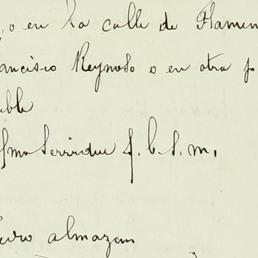 , o en la calle de Flamen
ancisco Reynoso o en otra p
able
smo Servidor q. b. s. m.
auro almazan